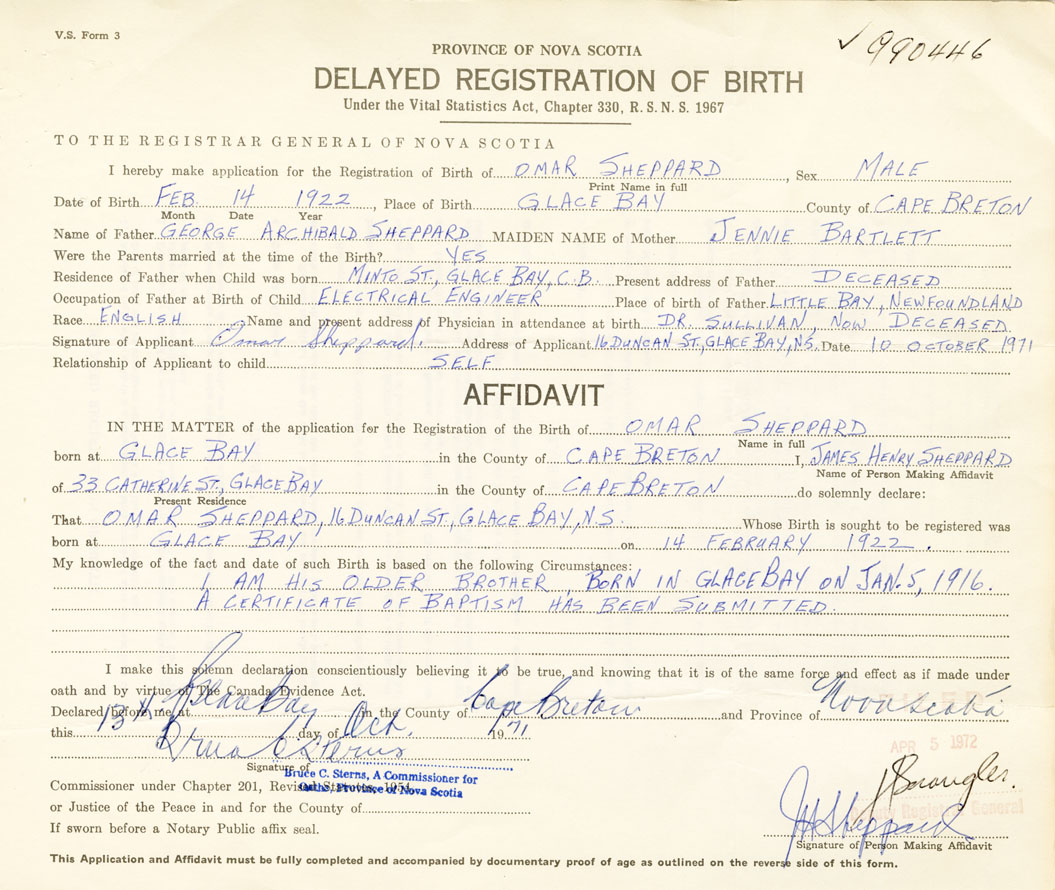 V.S. Form 3
✓990446
PROVINCE OF NOVA SCOTIA
DELAYED REGISTRATION OF BIRTH
Under the Vital Statistics Act, Chapter 330, R. S. N. S. 1967
TO THE REGISTRAR GENERAL OF NOVA SCOTIA
I hereby make application for the Registration of Birth of OMAR SHEPPARD, Sex MALE
Print Name in full
Date of Birth FEB. 14 1922, Place of Birth GLACE BAY County of CAPE BRETON
Month Date Year
Name of Father GEORGE ARCHIBALD SHEPPARD MAIDEN NAME of Mother JENNIE BARTLETT
Were the Parents married at the time of the Birth? YES
Residence of Father when Child was born MINTO ST., GLACE BAY, C.B. Present address of Father DECEASED
Occupation of Father at Birth of Child ELECTRICAL ENGINEER Place of birth of Father LITTLE BAY, NEWFOUNDLAND
Race ENGLISH Name and present address of Physician in attendance at birth DR. SULLIVAN, NOW DECEASED
Signature of Applicant Omar Sheppard. Address of Applicant 16 DUNCAN ST., GLACE BAY, N.S. Date 10 OCTOBER 1971
Relationship of Applicant to child SELF
AFFIDAVIT
IN THE MATTER of the application for the Registration of the Birth of OMAR SHEPPARD
Name in full
born at GLACE BAY in the County of CAPE BRETON I, JAMES HENRY SHEPPARD
Name of Person Making Affidavit
of 33 CATHERINE ST., GLACE BAY in the County of CAPE BRETON do solemnly declare:
Present Residence
That OMAR SHEPPARD, 16 DUNCAN ST., GLACE BAY, N.S. Whose Birth is sought to be registered was
born at GLACE BAY on 14 FEBRUARY 1922.
My knowledge of the fact and date of such Birth is based on the following Circumstances:
I AM HIS OLDER BROTHER, BORN IN GLACE BAY ON JAN. 5, 1916.
A CERTIFICATE OF BAPTISM HAS BEEN SUBMITTED.
I make this solemn declaration conscientiously believing it to be true, and knowing that it is of the same force and effect as if made under
oath and by virtue of The Canada Evidence Act.
Declared before me at Glace Bay in the County of Cape Breton and Province of Nova Scotia
this 13th day of Oct. 1971
FILED
APR 5 1972
Deputy Registrar General
Bruce C Sterns
Signature of
Bruce C. Sterns, A Commissioner for
Oaths, Province of Nova Scotia
Commissioner under Chapter 201, Revised Statutes, 1954
or Justice of the Peace in and for the County of
If sworn before a Notary Public affix seal.
JH Sheppard
Signature of Person Making Affidavit
This Application and Affidavit must be fully completed and accompanied by documentary proof of age as outlined on the reverse side of this form.